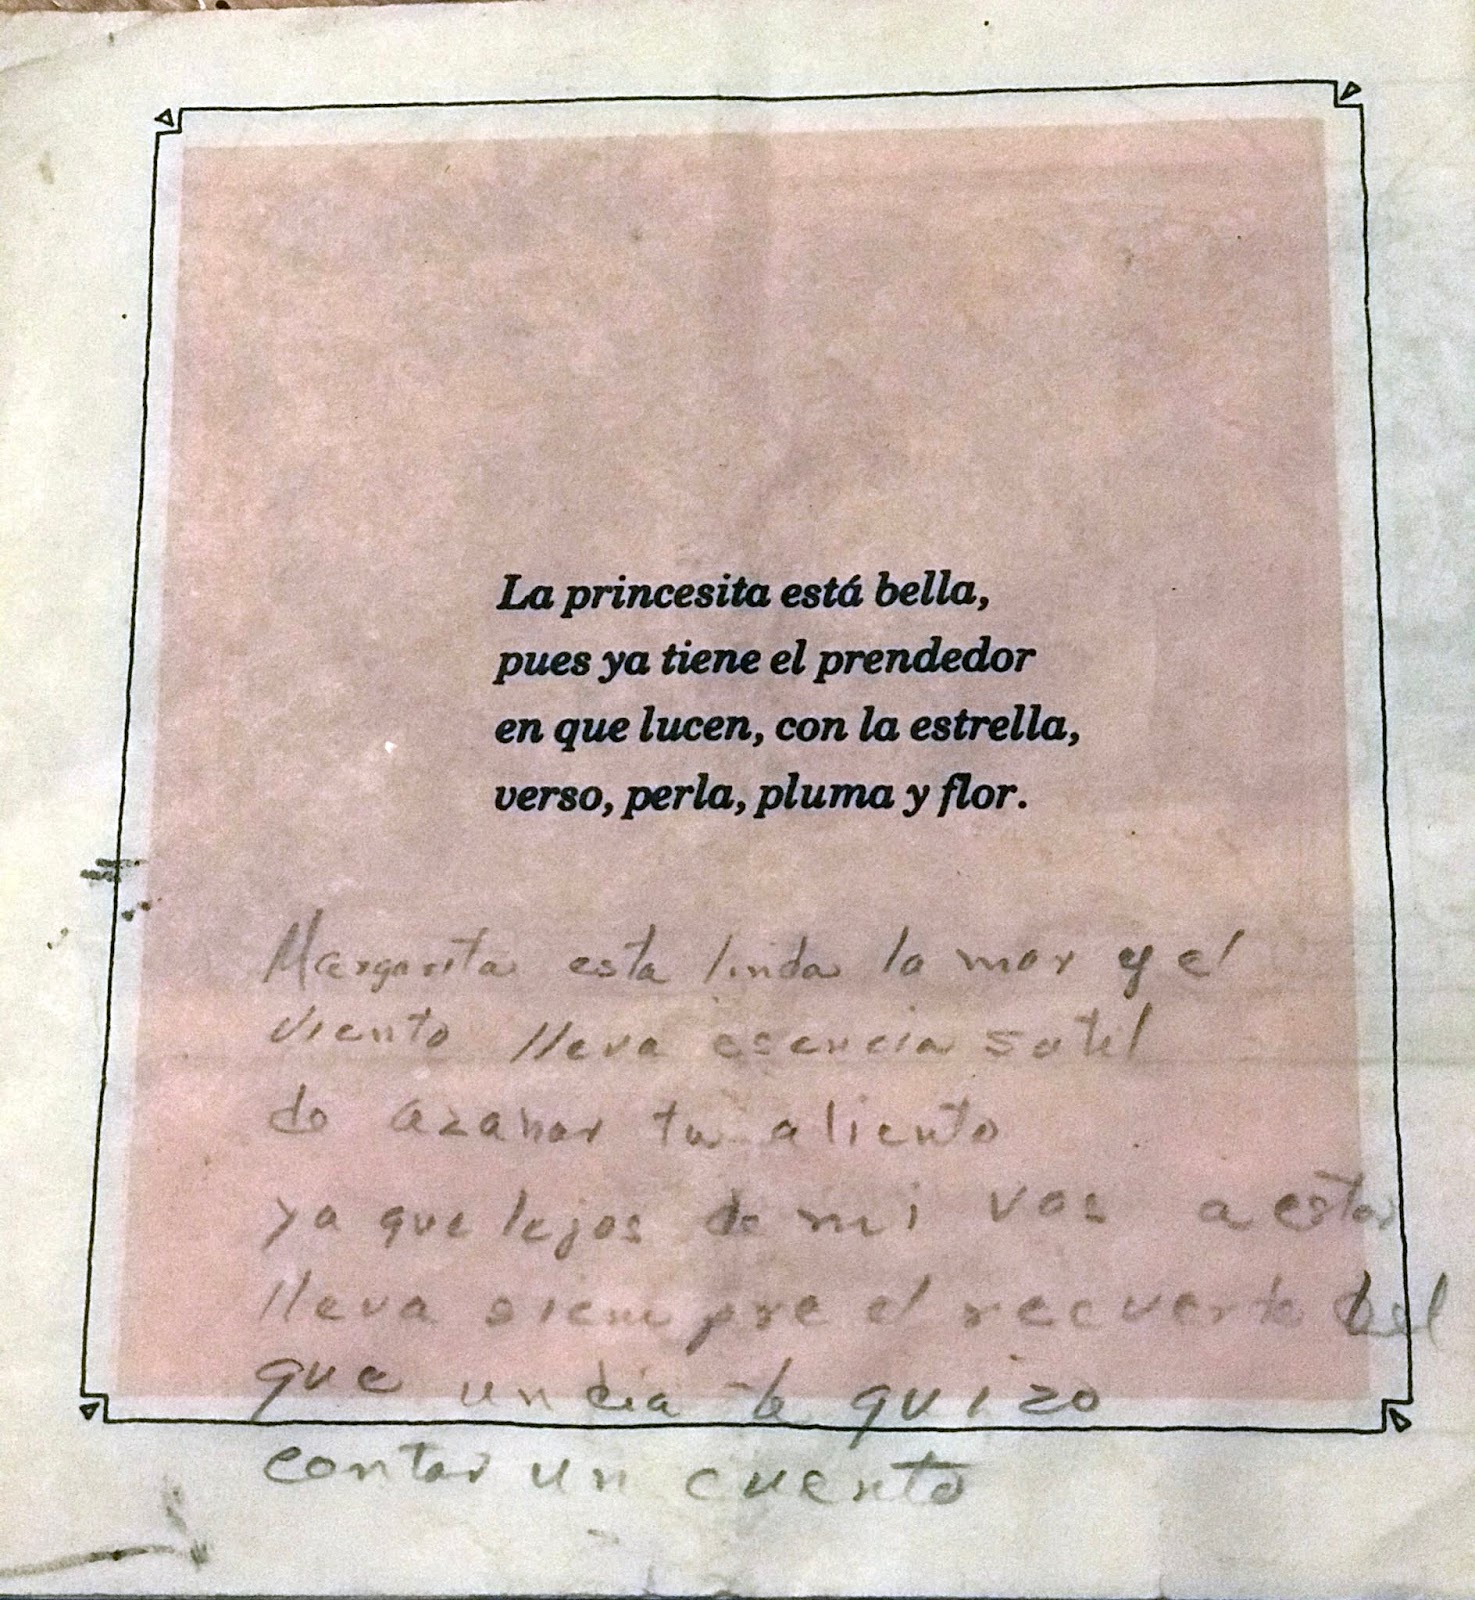 La princesita está bella,
pues ya tiene el prendedor
en que lucen, con la estrella,
verso, perla, pluma y flor.
Margarita esta linda la mar y el
viento lleva esencia sutil
de azahar tu aliento
ya que lejos de mi vas a estar
lleva siempre el recuerdo del
que un dia te quizo
contar un cuento